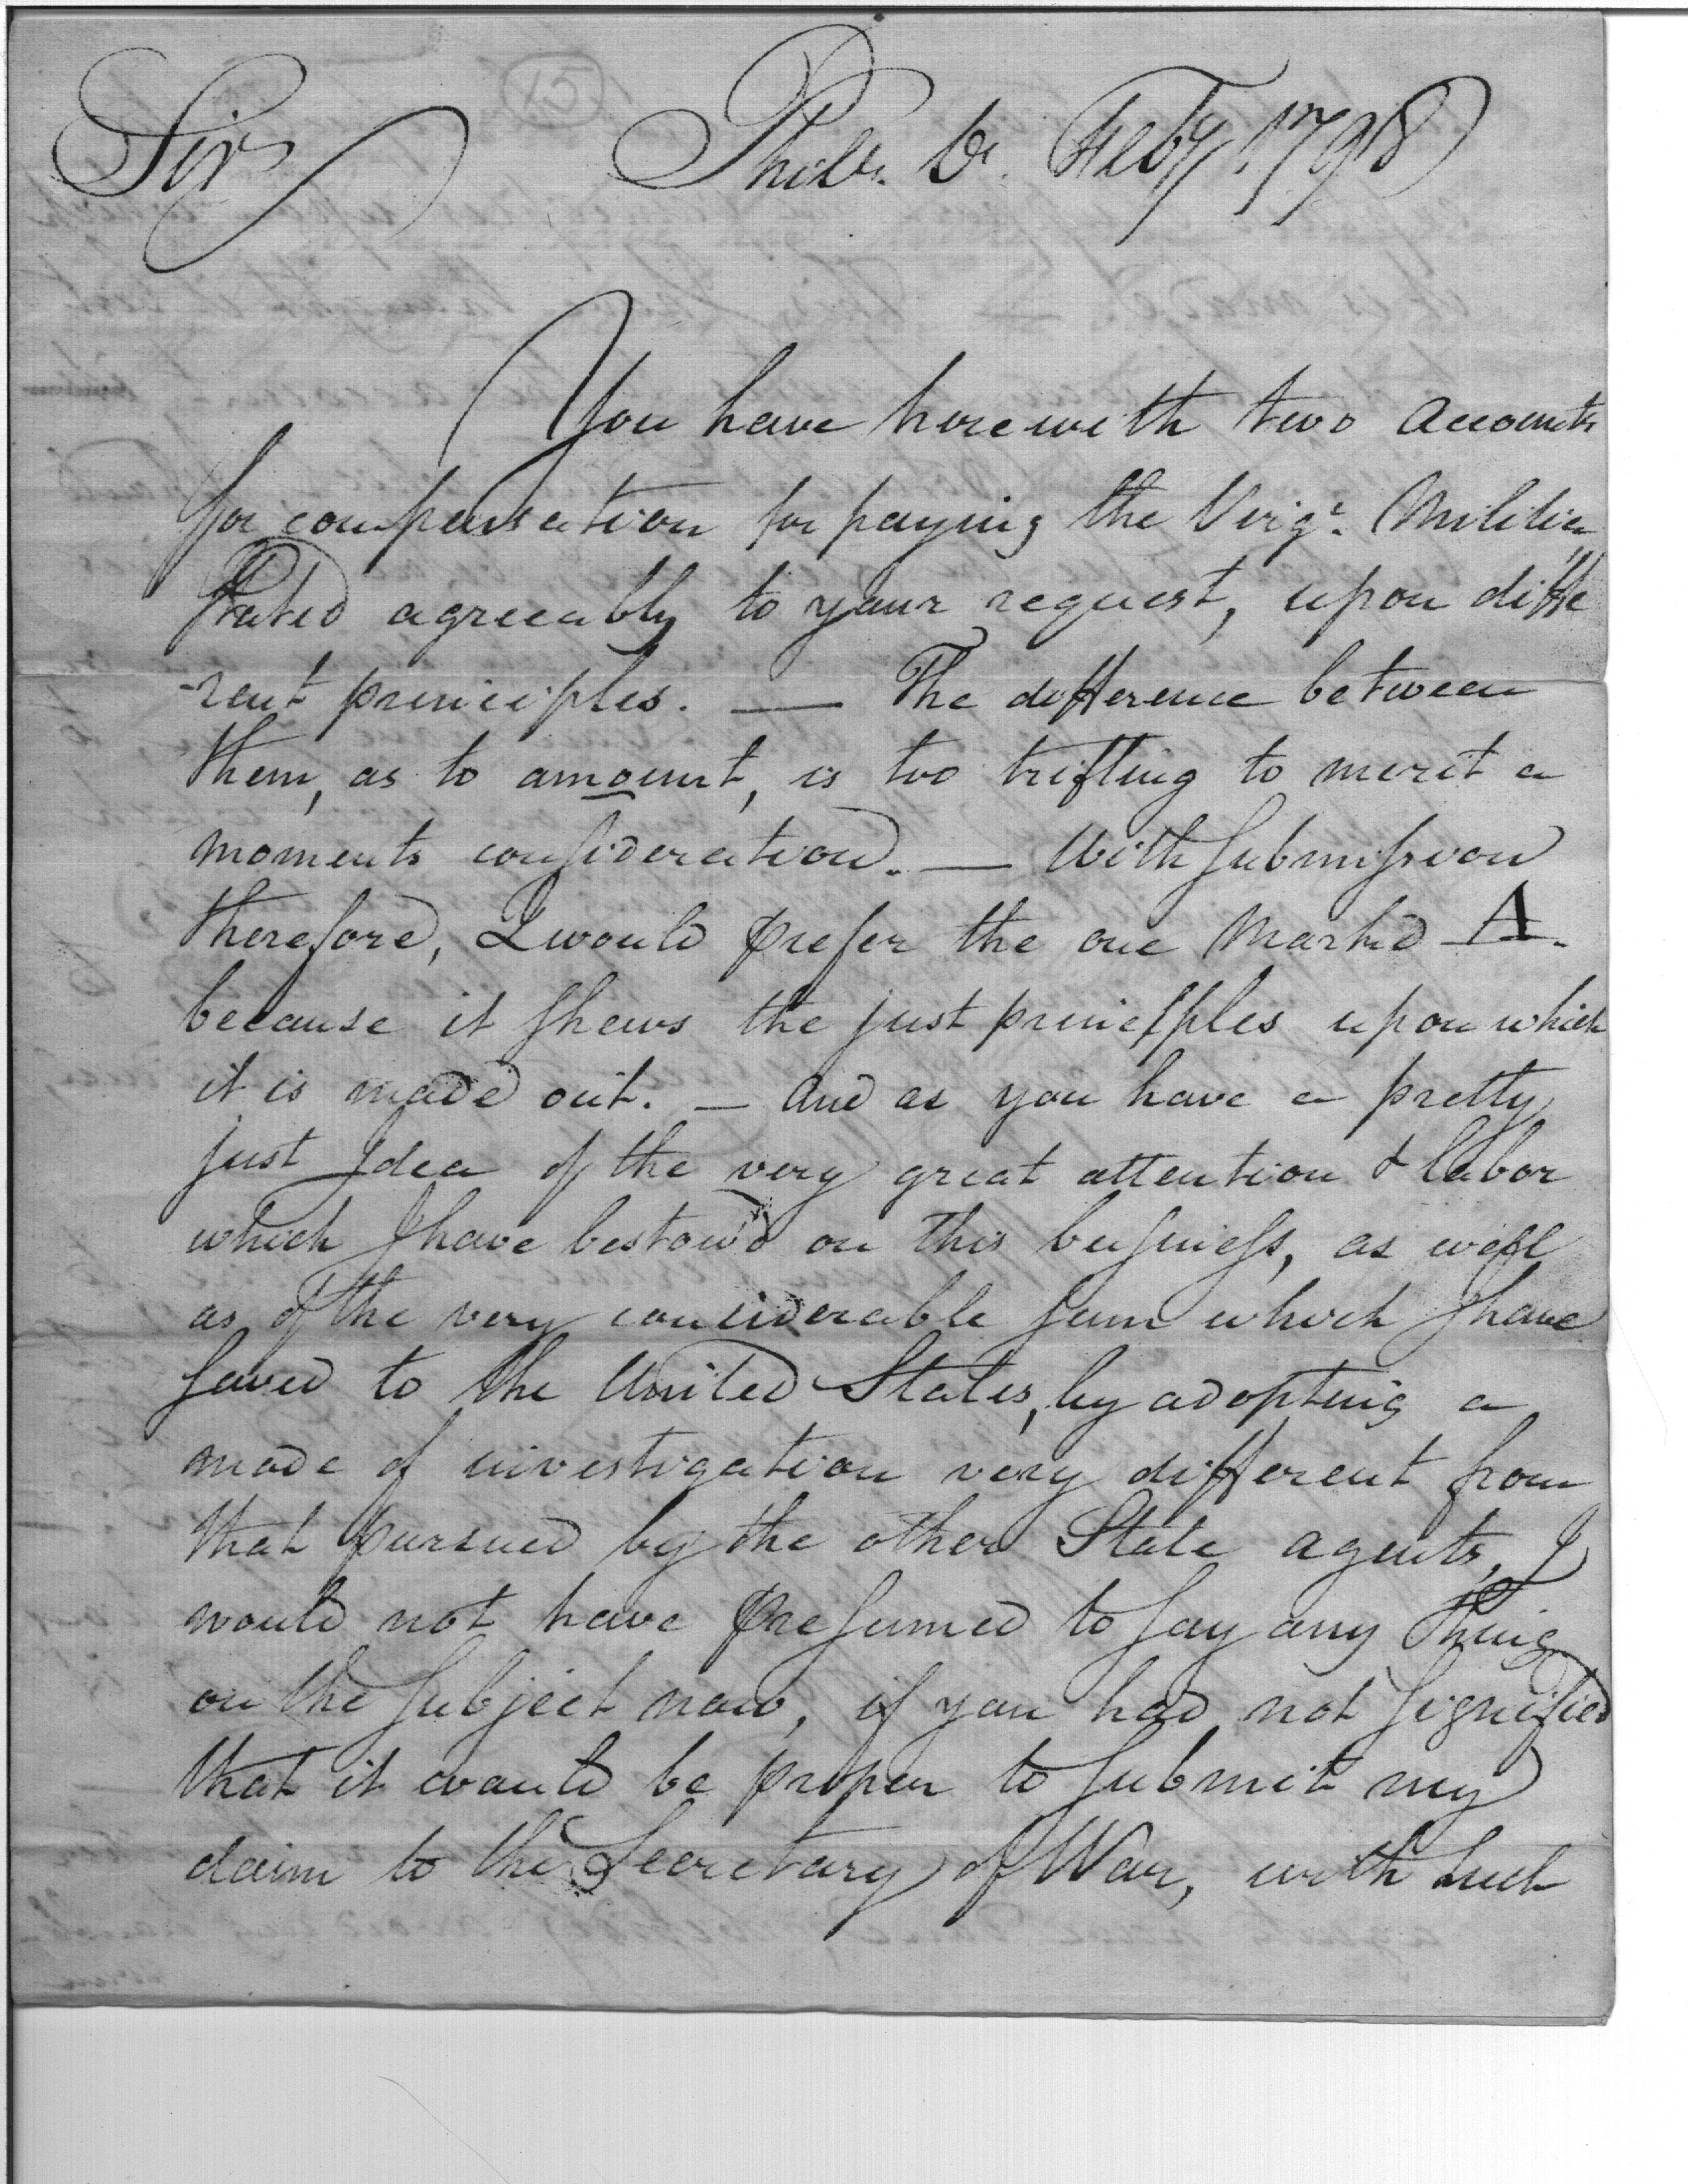 Sir Phila. 6. Feby. 1798
You have herewith two accounts
for compensation for paying the Virga. Militia
stated agreeably to your request, upon diffe
-rent principles. — The difference between
them, as to amount, is too trifling to merit a
moments consideration. — With submission
therefore, I would prefer the one marked A.
because it shews the just principples upon which
it is made out. — and as you have a pretty
just Idea of the very great attention & labor
which I have bestow'd on this business, as well
as of the very considerable sum which I have
saved to the United States, by adopting a
mode of investigation very different from
that pursued by the other State agents, I
would not have presumed to say any thing
on the subject now, if you had not signified
that it would be proper to submit my
claim to the Secretary of War, with such